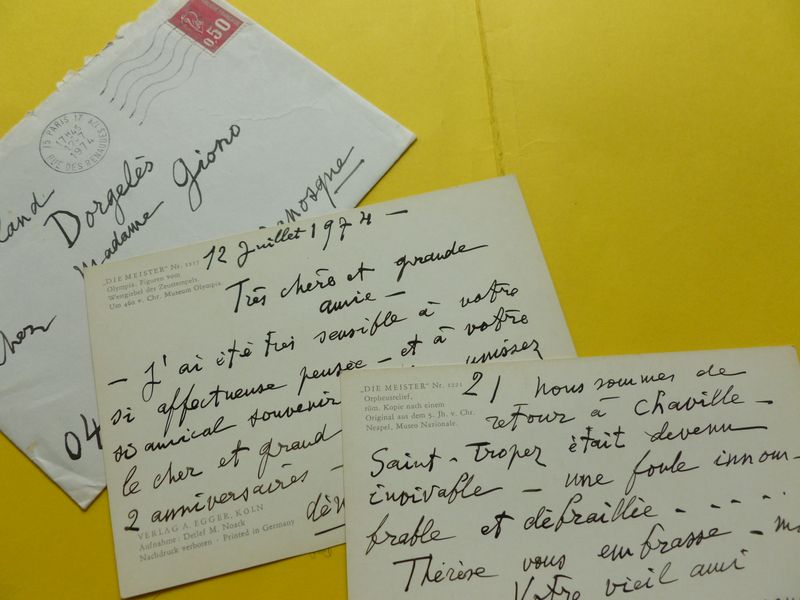 0,50
75 PARIS 17
17H45
12-7
1974
RUE DES RENAUDES
Dorgelès
Madame Giono
nosque
chez
04
12 Juillet 1974 —
„DIE MEISTER" Nr. 1217
Olympia. Figuren vom
Westgiebel des Zeustempels.
Um 460 v. Chr. Museum Olympia.
Très chère et grande
amie —
— J'ai été très sensible à votre
si affectueuse pensée — et à votre
si amical souvenir unissez
le cher et grand
2 anniversaires —
VERLAG A. EGGER, KÖLN
Aufnahme: Detlef M. Noack
Nachdruck verboten - Printed in Germany
„DIE MEISTER" Nr. 1221
Orpheusrelief,
röm. Kopie nach einem
Original aus dem 5. Jh. v. Chr.
Neapel, Museo Nazionale.
2/ nous sommes de
retour à Chaville —
Saint-Tropez était devenu
invivable — une foule innom-
brable et défraillée - - - - -
Thérèse vous embrasse —
Votre vieil ami